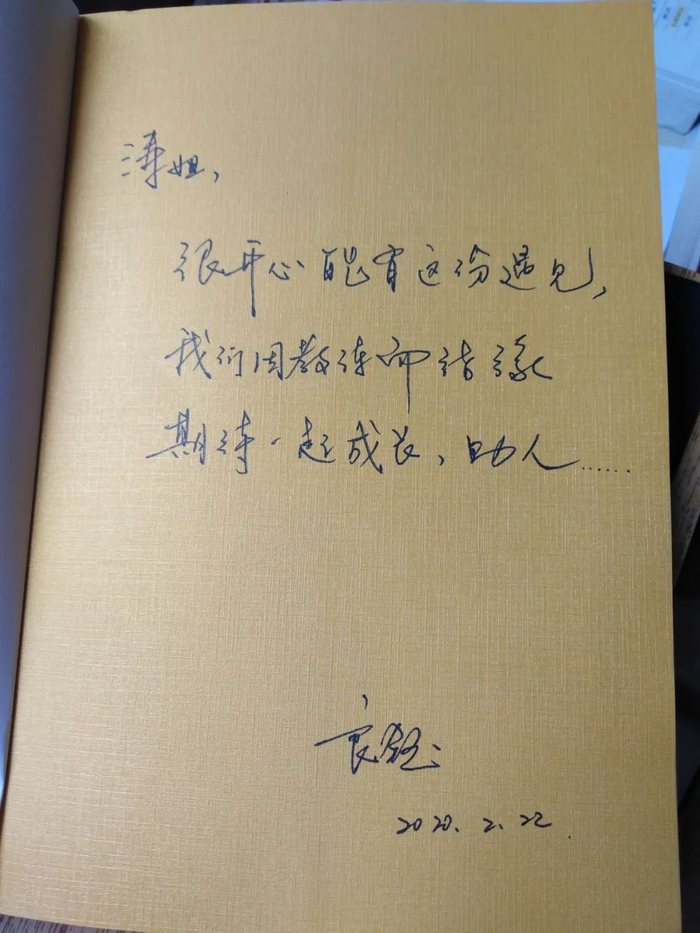 涛姐，
很开心能有这份遇见，
我们因教练而结缘
期待一起成长，助人……
2020.2.22